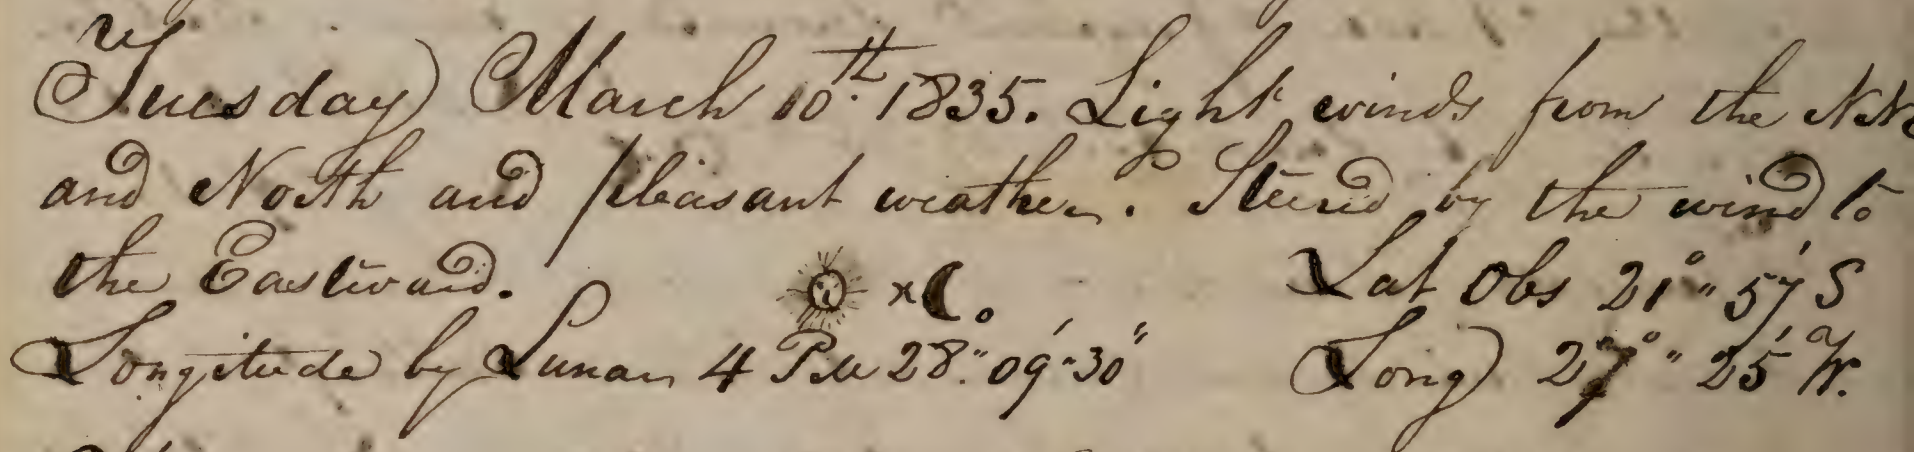 Tuesday March 10th 1835. Light winds from the NNE
and North and pleasant weather. Steered by the wind to
the Eastward. ☉ × ☾. Lat Obs 21°" 57' S
Longitude by Lunar 4 PM 28°" 09'" 30" Long 27°" 25' W.